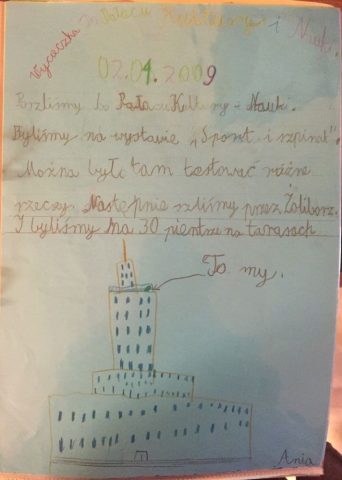 Wycieczka do Pałacu Kultury i Nauki.
02.04.2009
Poszliśmy do Pałacu Kultury i Nauki.
Byliśmy na wystawie „Sport i szpinat".
Można było tam testować różne
rzeczy. Następnie szliśmy przez Żoliborz.
I byliśmy na 30 pientrze na tarasach.
To my.
Ania